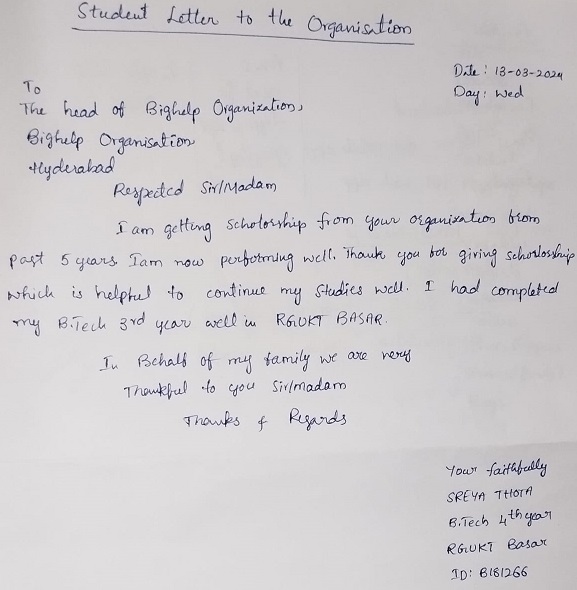 Student Letter to the Organisation
Date: 13-03-2024
Day: Wed
To
The head of Bighelp Organization,
Bighelp Organisation
Hyderabad
Respected Sir/Madam
I am getting Scholorship from your organization from
past 5 years. Iam now performing well. Thank you for giving schorlosship
which is helpful to continue my Studies well. I had completed
my B.Tech 3rd year well in RGUKT BASAR.
In Behalf of my family we are very
Thankful to you Sir/madam
Thanks & Regards
Your faithfully
SREYA THOTA
B.Tech 4th year
RGUKT Basar
ID: B181266